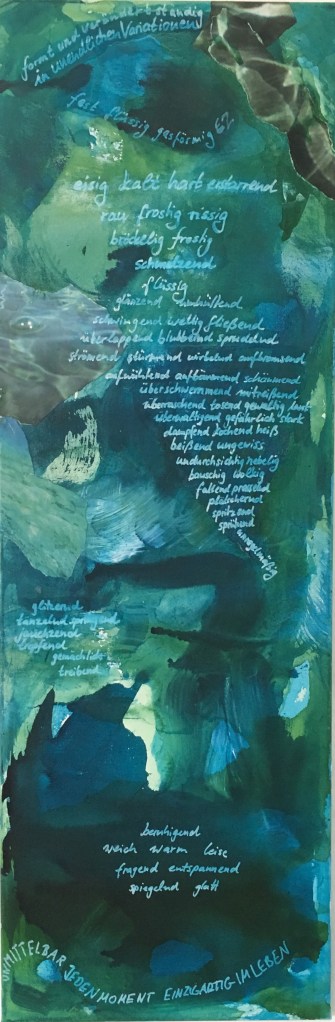 formt und verändert ständig
in unendlichen Variationen
fest flüssig gasförmig
eisig kalt hart erstarrend
rau frostig rissig
bröckelig frostig
schmelzend
flüssig
glänzend umhüllend
schwingend wellig fließend
überlappend blubbernd sprudelnd
strömend stürmend wirbelnd aufbrausend
aufwühlend aufbäumend schäumend
überschwemmend mitreißend
überraschend tosend gewaltig laut
überwältigend gefährlich stark
dampfend kochend heiß
beißend ungewiss
undurchsichtig nebelig
bauschig wolkig
fallend prasselnd
plätschernd
spritzend
sprühend
unregelmäßig
glitzernd
tanzelnd springend
jauchzend
tropfend
gemächlich
treibend
beruhigend
weich warm leise
fragend entspannend
spiegelnd glatt
UNMITTELBAR JEDEN MOMENT EINZIGARTIG IM LEBEN